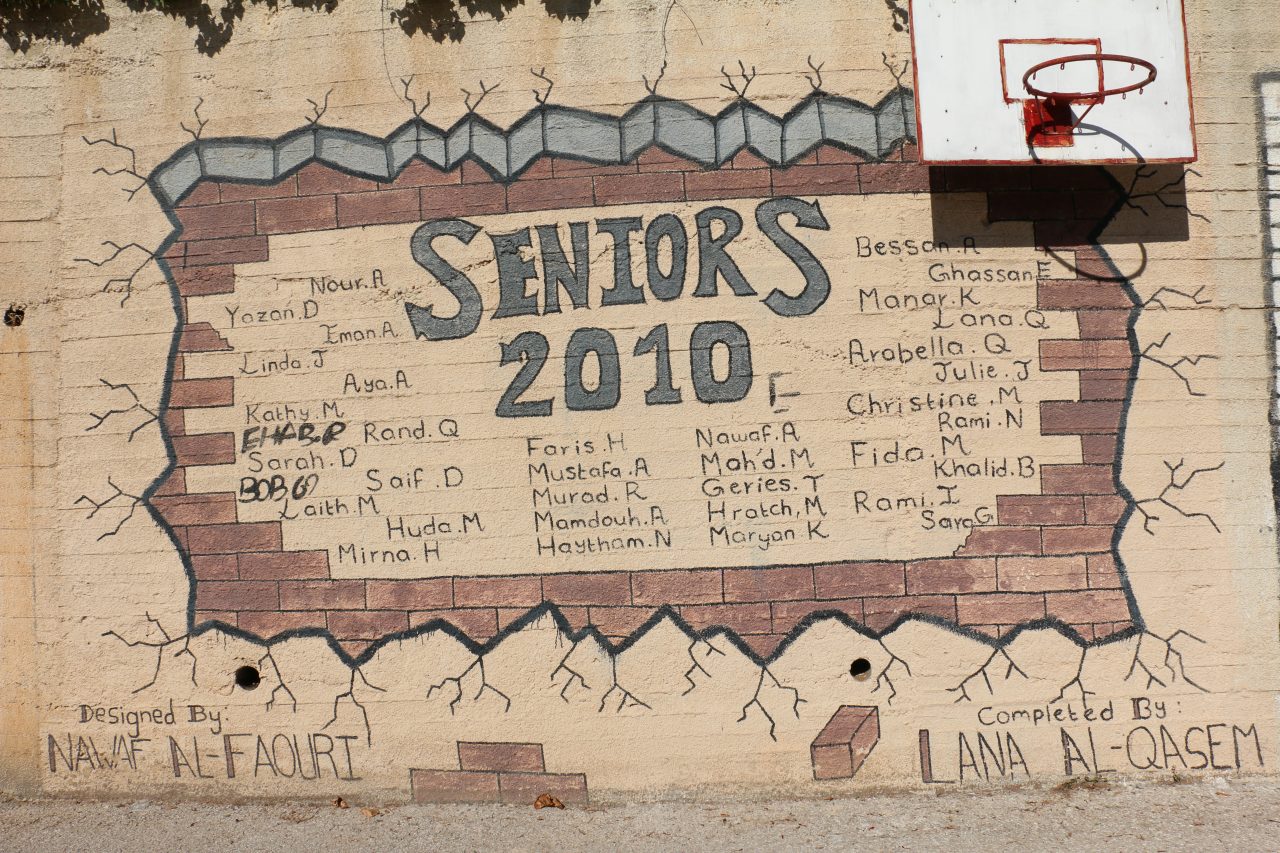 SENIORS
2010
Nour.A
Yazan.D
Eman.A
Linda.J
Aya.A
Kathy.M
EHAB.R
Rand.Q
Sarah.D
Saif.D
BOB
Laith.M
Huda.M
Mirna.H
Faris.H
Mustafa.A
Murad.R
Mamdouh.A
Haytham.N
Nawaf.A
Moh'd.M
Geries.T
Hratch,M
Maryan K
Bessan.A
Ghassan E
Manar.K
Lana.Q
Arabella.Q
Julie.J
Christine.M
Rami.N
Fida.M
Khalid.B
Rami.I
Sara G
Designed By:
NAWAF AL-FAOURI
Completed By:
LANA AL-QASEM